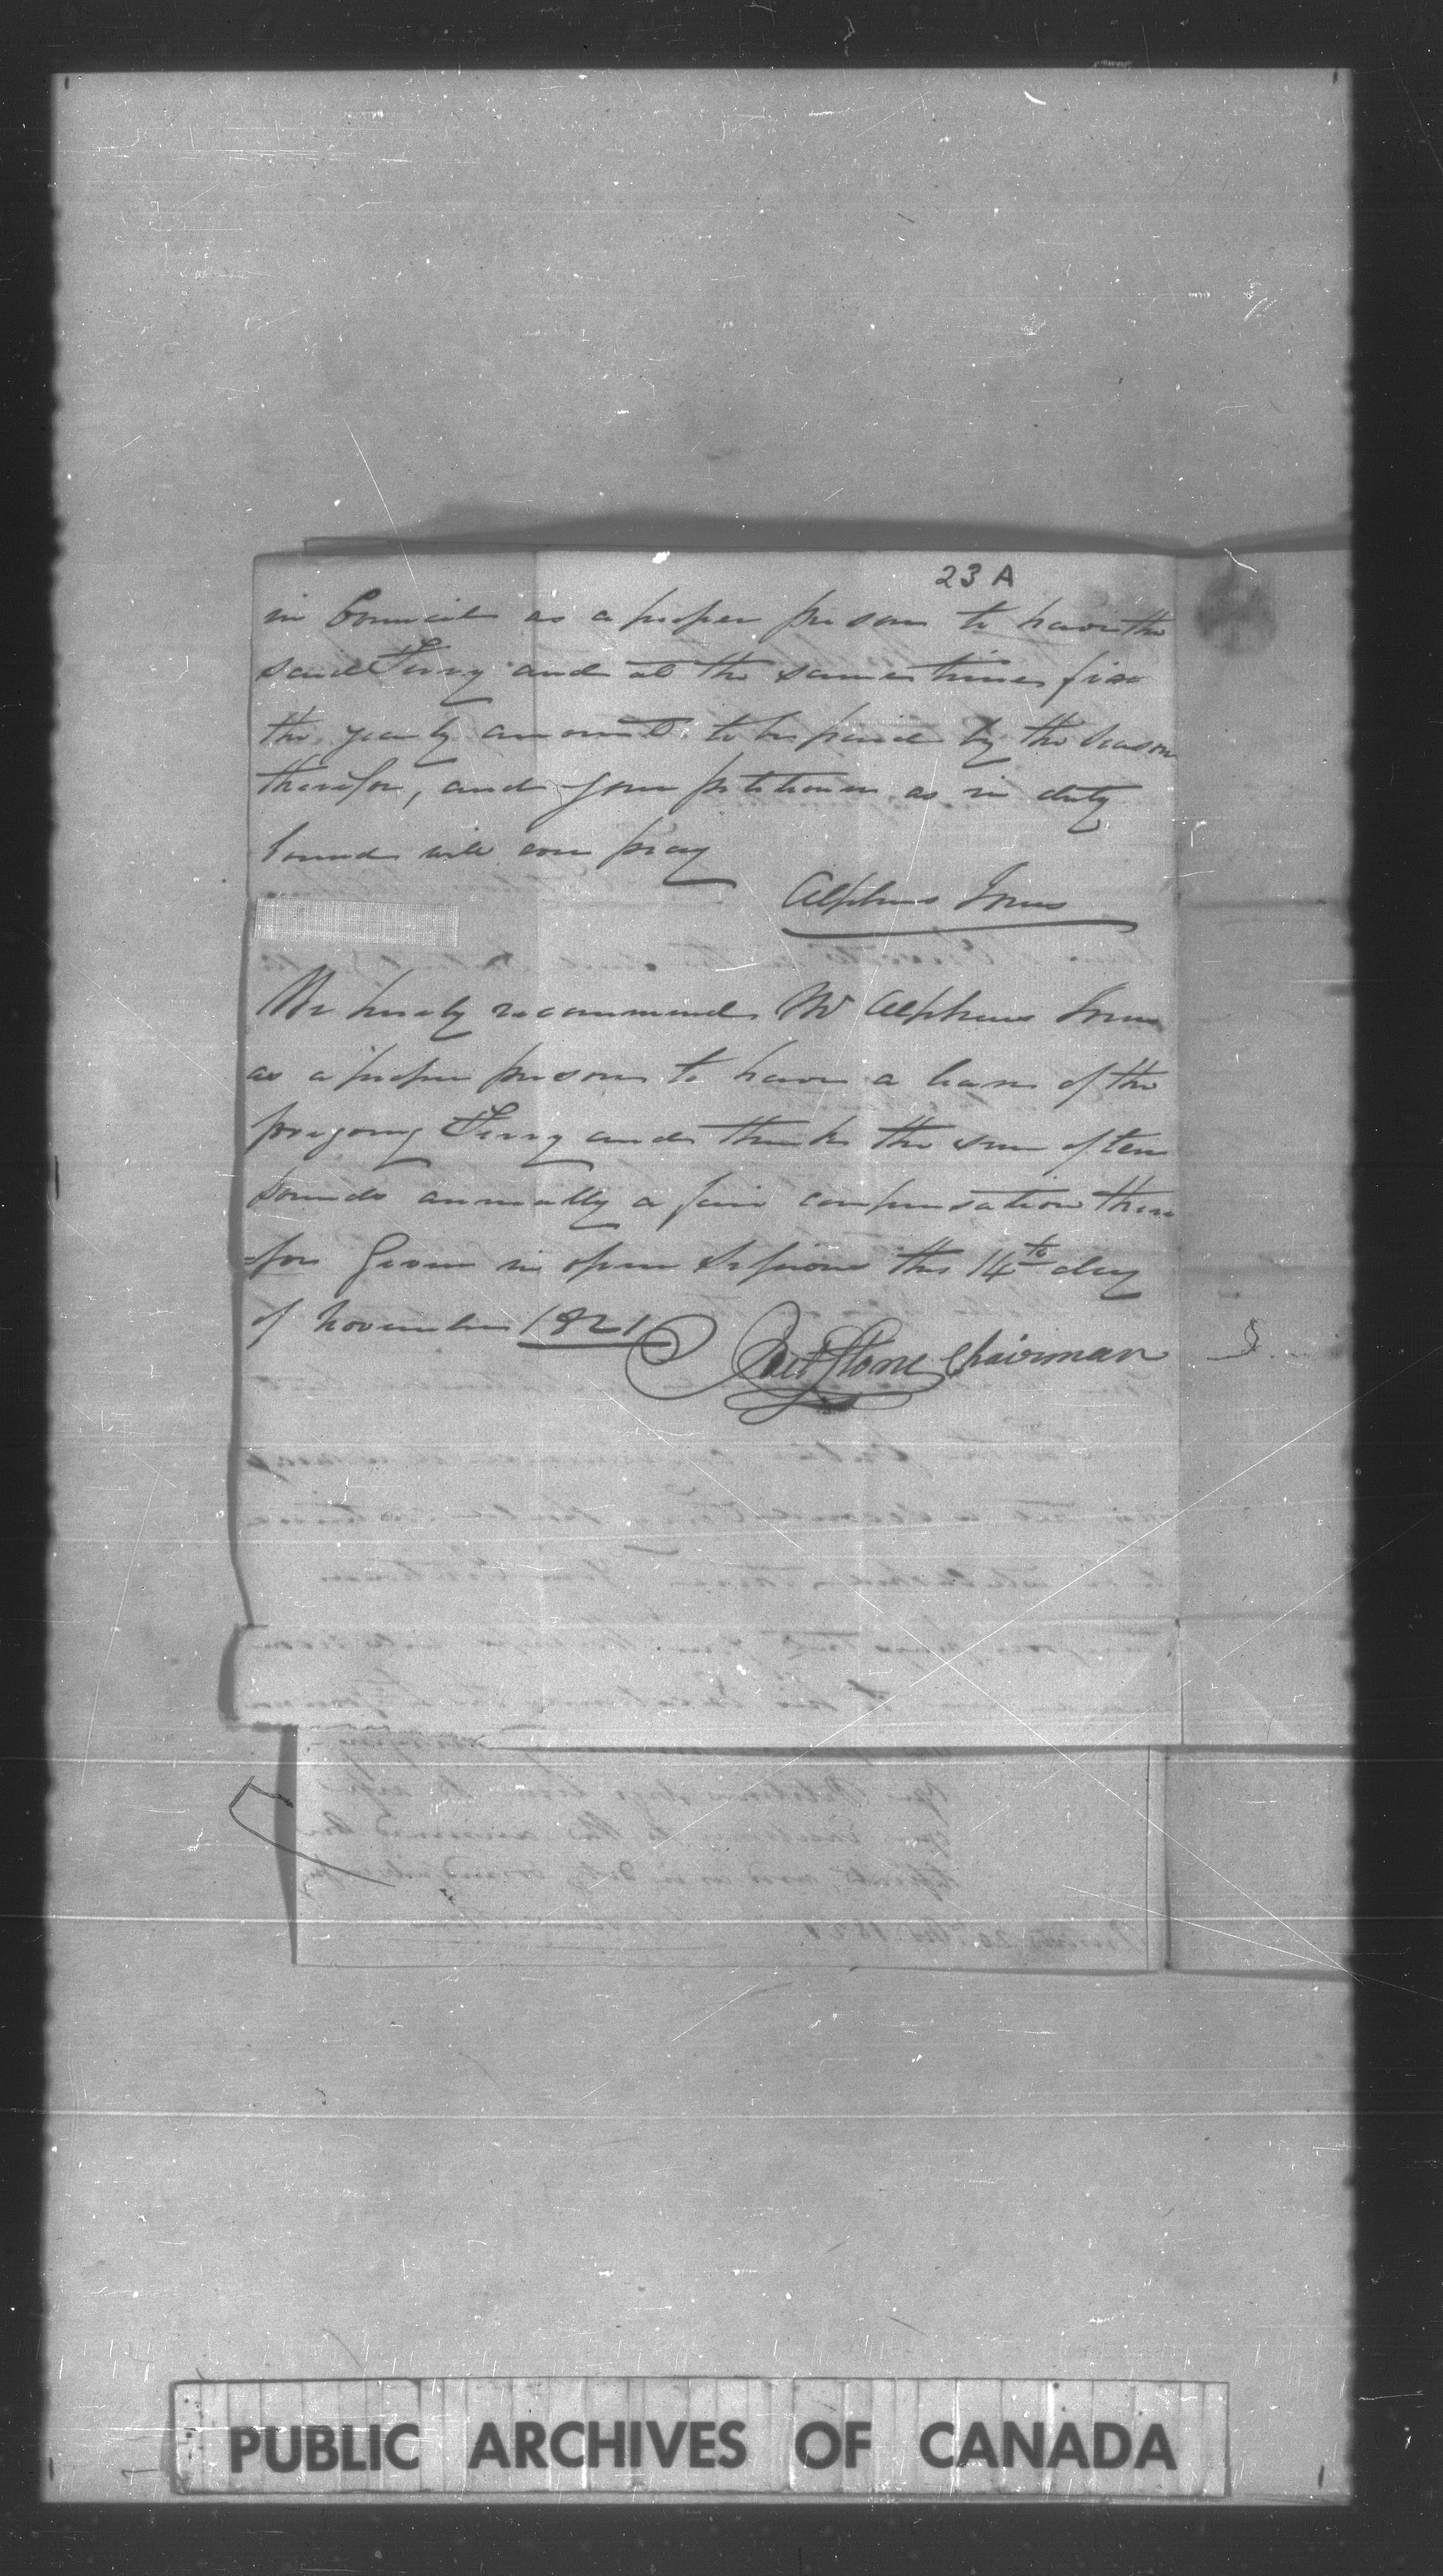 23 A
in Council as a proper person to have the
said Ferry and at the same time fix
the yearly amount to be paid by the Season
therefor, and your petitioner as in duty
bound will ever pray
Alpheus Jones
We hereby recommend Mr Alpheus Jones
as a proper person to have a lease of the
foregoing Ferry and think the sum of ten
pounds annually a fair compensation there
=for Given in open Sessions this 14th day
of November 1821
Joel Stone Chairman
PUBLIC ARCHIVES OF CANADA